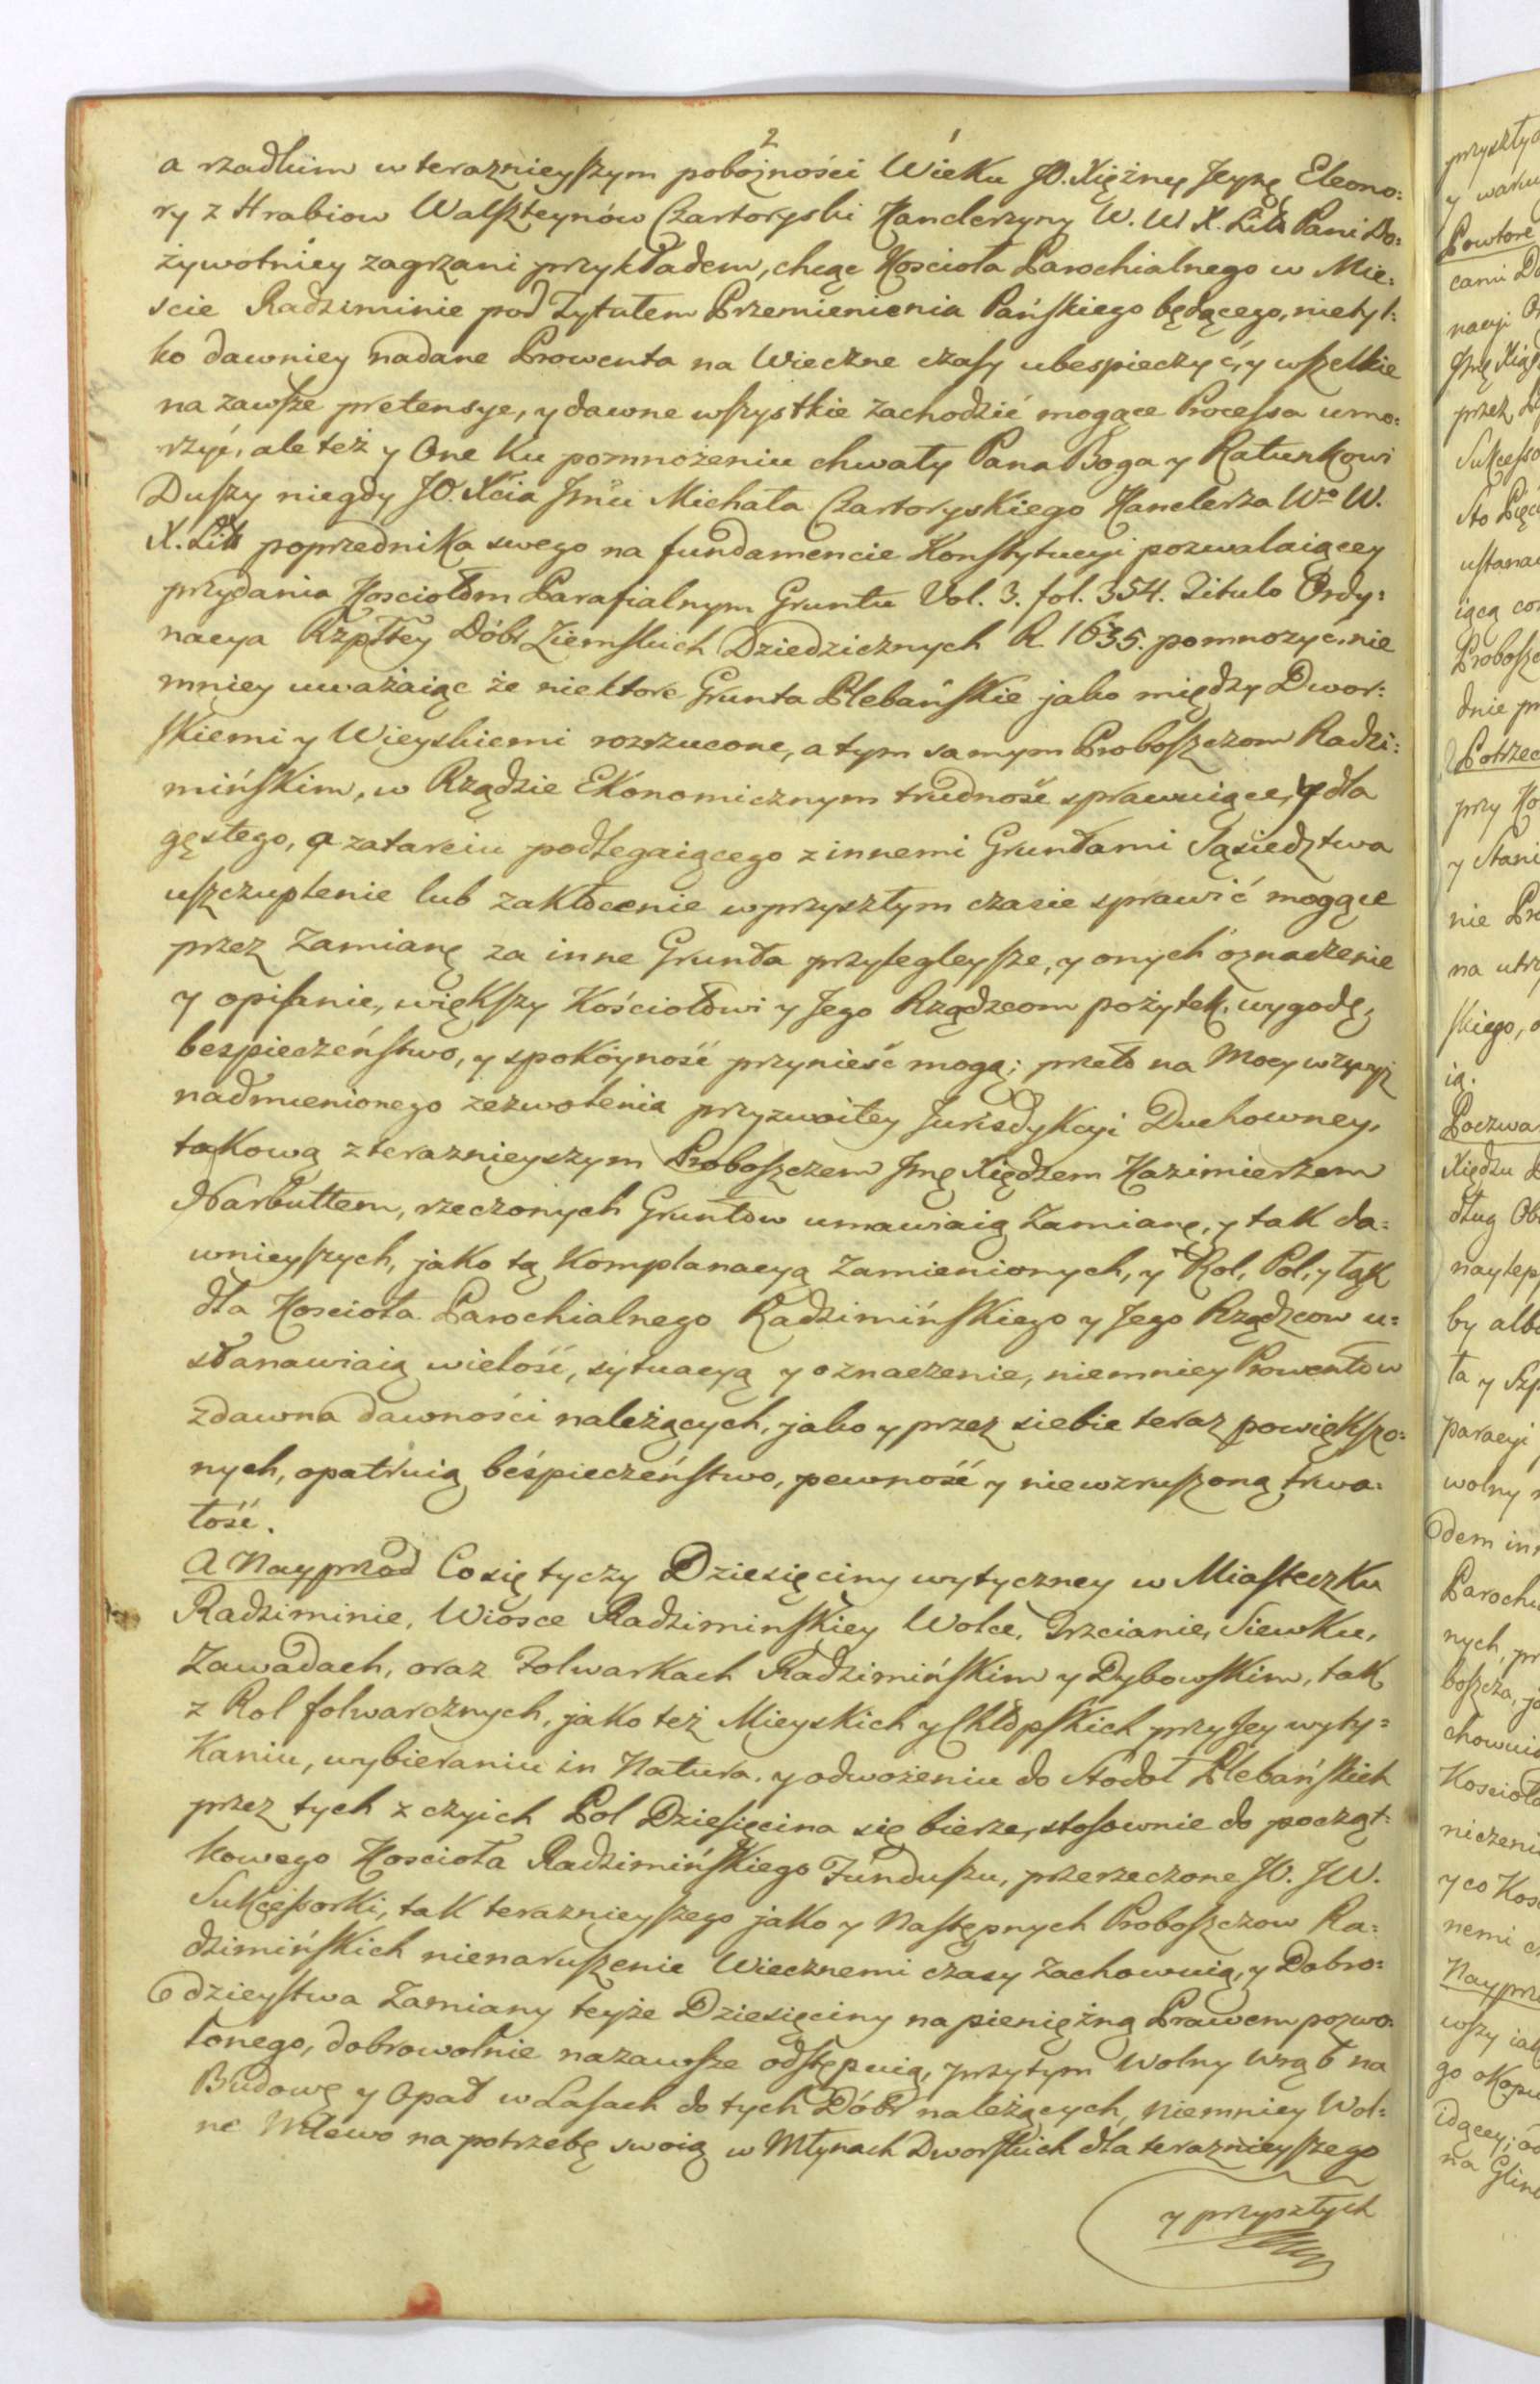 2
a rzadkim w teraznieyszym pobożności Wieku JO. Xiężney Jeymę Eleono:
ry z Hrabiow Walszteynów Czartoryski Kanclerzyny W. W. X. Litt Pani Do:
żywotniey zagrzani przykładem, chcąc Koscioła Parochialnego w Mie:
scie Radziminie pod Tytułem Przemienienia Pańskiego będącego, nietyl:
ko dawniey nadane Prowenta na Wieczne czasy ubespieczyć, y wszelkie
na zawsze pretensye, y dawne wszystkie zachodzić mogące Processa umo:
rzyć, ale też y One ku pomnożeniu chwały Pana Boga y Ratunkowi
Duszy niegdy JO. Xcia Jmci Michała Czartoryskiego Kanclerza Wo W.
X. Litt poprzednika swego na fundamencie Konstytucyi pozwalaiącey
przydania Kosciołom Parafialnym Gruntu Vol. 3. fol. 354. Titulo Ordy:
nacya Rzpltey Dóbr Ziemskich Dziedzicznych R. 1635. pomnozyc, nie
mniey uważaiąc że niektore Grunta Plebańskie jako między Dwor:
skiemi y Wieyskiemi rozrzucone, a tym samym Proboszczom Radzi:
mińskim, w Rządzie Ekonomicznym trudność sprawuiące, y dla
gęstego, a zatarciu podlegaiącego z innemi Gruntami Sąsiedztwa
uszczuplenie lub zakłócenie w przyszłym czasie sprawić mogące
przez Zamianę za inne Grunta przylegleysze, y onych oznaczenie
y opisanie, większy Kościołowi y Jego Rządzcom pożytek, wygodę,
bespieczeństwo, y spokoyność przynieść mogą; przeto na Mocy wzwyż
nadmienionego zezwolenia przyzwoitey Jurisdykcyi Duchowney,
takową z teraznieyszym Proboszczem Jmę Xiędzem Kazimierzem
Narbuttem, rzeczonych Gruntow umawiaią Zamianę, y tak da:
wnieyszych, jako tą Komplanacyą Zamienionych, y Rol, Pol, y Łąk
dla Kosciola Parochialnego Radzimińskiego y Jego Rządzcow u:
stanawiaią wielość, sytuacyą y oznaczenie, niemniey Prowentów
zdawna dawności należących, jako y przez siebie teraz powiększo:
nych, opatruią beśpieczeństwo, pewność y niewzruszoną trwa:
łość.
A Nayprzod Co się tyczy Dziesięciny wytyczney w Miasteczku
Radziminie, Wiosce Radziminskiey Wolce, Trzcianie, Siewku,
Zawadach, oraz Folwarkach Radzimińskim y Dybowskim, tak
z Rol folwarcznych, jako też Mieyskich y Chłopskich przy Jey wyty:
kaniu, wybieraniu in Natura, y odwożeniu do Stodoł Plebańskich
przez tych z czyich Pol Dziesięcina się bierze, stosownie do począt:
kowego Kosciola Radzimińskiego Funduszu, przerzeczone JO. JW.
Sukcessorki, tak teraznieyszego jako y Następnych Proboszczow Ra:
dzimińskich nienaruszenie Wiecznemi czasy zachowuią, y Dobro:
dzieystwa Zamiany teyże Dziesięciny na pieniężną Prawem pozwo:
lonego, dobrowolnie nazawsze odstępuią, przytym Wolny Wrąb na
Budowę y Opał w Lasach do tych Dóbr należących, Niemniey Wol:
ne Mlewo na potrzebę swoią w Młynach Dworskich dla teraznieyszego
y przyszłych